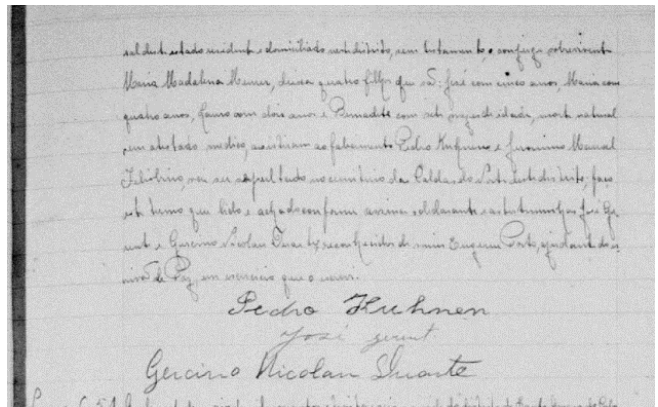 sal deste estado residente e domiciliado neste distrito, sem testamento, o conjuge sobrevivente
Maria Madalena deixa quatro filhos que são: José com cinco anos, Maria com
quatro anos, Lauro com dois anos e Bernadete com seis mezes de idade, morte natural
sem atestado medico, assistiram ao falecimento Pedro e Jeronimo Manoel
vai ser sepultado no cemiterio da deste distrito, faço
este termo que lido e achado conforme assina o declarante e as testemunhas José Ge
rent e Gercino Nicolau Duarte reconhecidos de mim Eugenio ajudante do es
crivão de Paz, em exercicio que o escrevi.
Pedro Kuhnen
José gerent
Gercino Nicolau Duarte